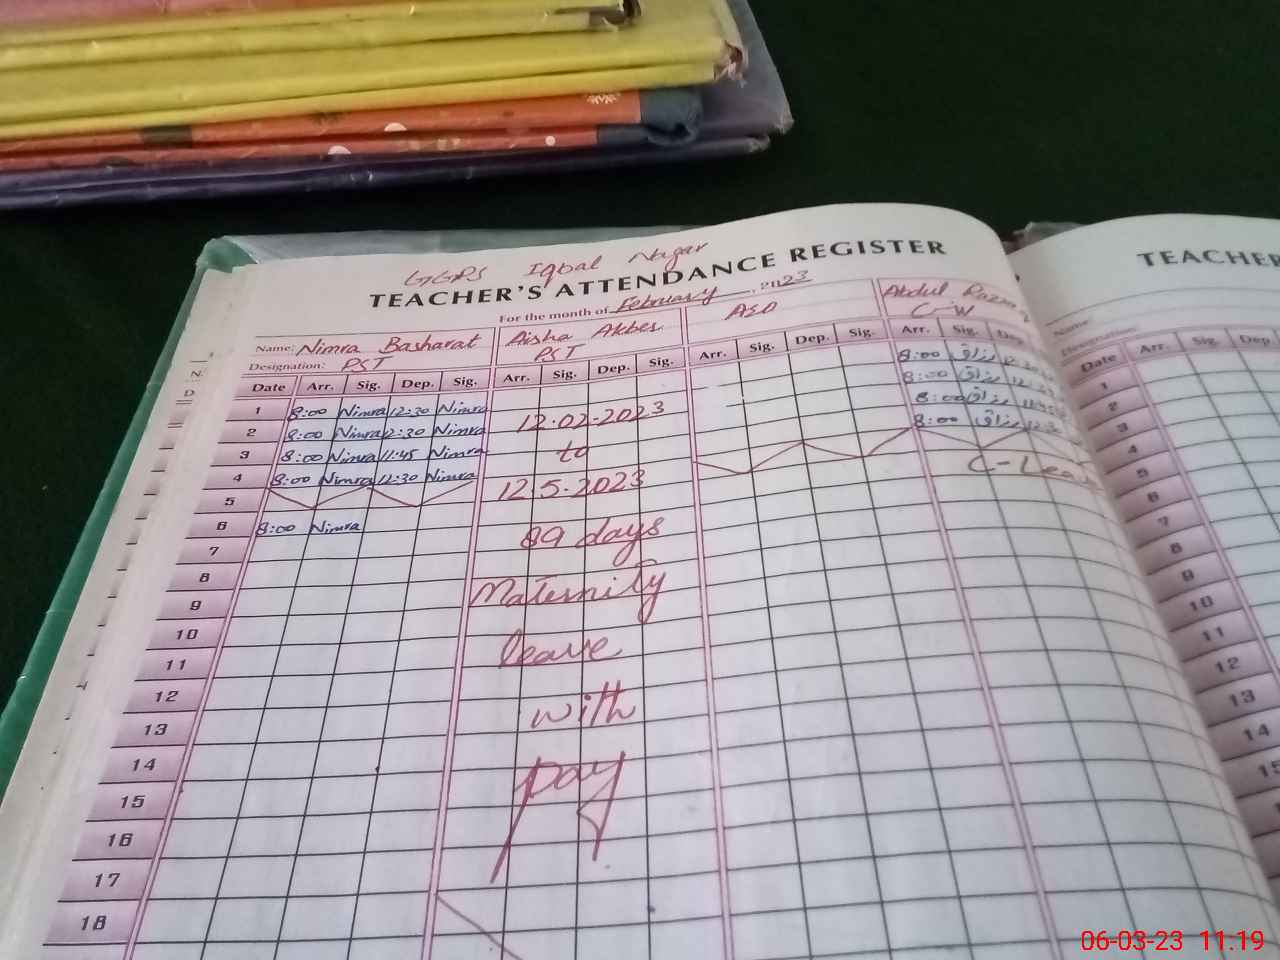 GGPS Iqbal Nagar
TEACHER'S ATTENDANCE REGISTER
For the month of February 2023
Name: Nimra Basharat Aisha Akber ASO Abdul
Designation: PST PST C-W
Date Arr. Sig. Dep. Sig. Arr. Sig. Dep. Sig. Arr. Sig. Dep. Sig. Arr. Sig. Dep
1 8:00 Nimra 12:30 Nimra 8:00 رزاق
2 8:00 Nimra 12:30 Nimra 12.02.2023 8:00 رزاق
3 8:00 Nimra 11:45 Nimra to 8:00 رزاق
4 8:00 Nimra 12:30 Nimra 12.5.2023 8:00 رزاق
5
6 8:00 Nimra 89 days C-Leav
7
8 Maternity
9
10 leave
11
12 with
13
14 pay
15
16
17
18
TEACHER
Name:
Designation:
Date Arr. Sig. Dep.
1
2
3
4
5
6
7
8
9
10
11
12
13
14
15
06-03-23 11:19